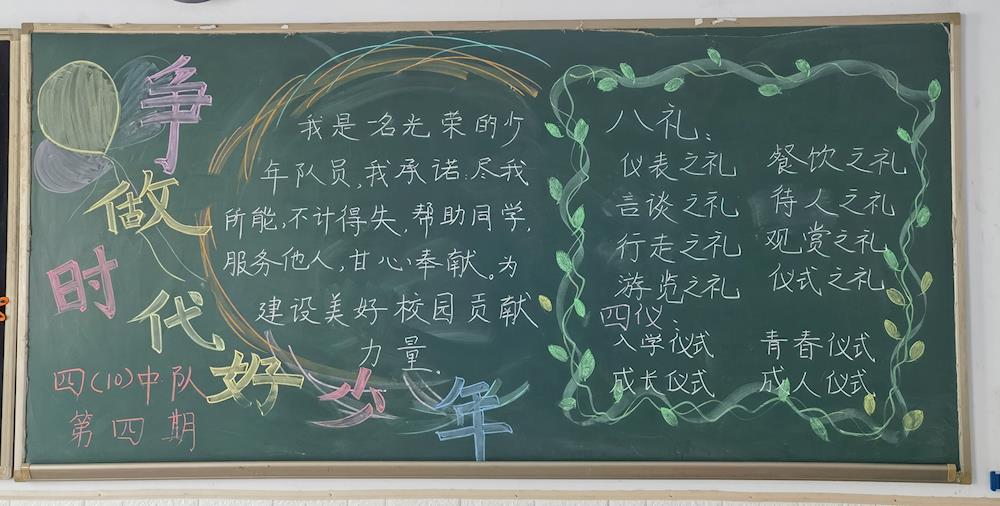 争做时代好少年
四(10)中队
第四期
我是一名光荣的少
年队员,我承诺:尽我
所能,不计得失,帮助同学,
服务他人,甘心奉献。为
建设美好校园贡献
力量.
八礼:
仪表之礼 餐饮之礼
言谈之礼 待人之礼
行走之礼 观赏之礼
游览之礼 仪式之礼
四仪:
入学仪式 青春仪式
成长仪式 成人仪式